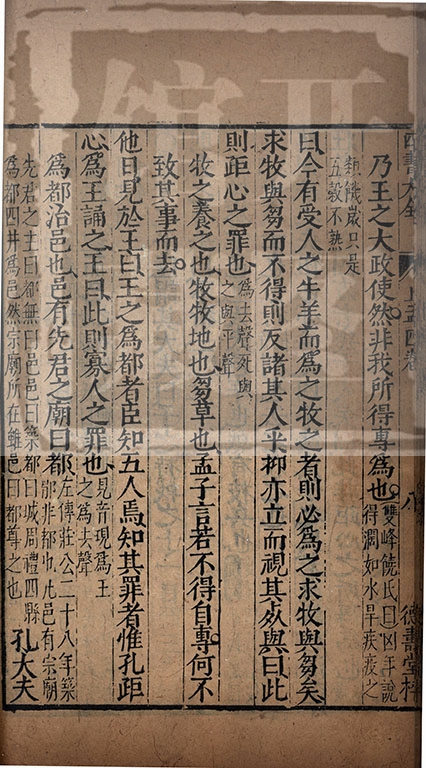 四書大全 上孟四卷 八 德壽堂梓
乃王之大政使然非我所得專爲也
雙峰饒氏曰凶年說
得濶如水旱疾疫之
類饑歲只是
五穀不熟
曰今有受人之牛羊而爲之牧之者則必爲之求牧與芻矣
求牧與芻而不得則反諸其人乎抑亦立而視其死與曰此
則距心之罪也
爲去聲死與
之與平聲
牧之養之也牧牧地也芻草也孟子言若不得自專何不
致其事而去
他日見於王曰王之爲都者臣知五人焉知其罪者惟孔距
心爲王誦之王曰此則寡人之罪也
見音現爲王
之爲去聲
爲都治邑也邑有先君之廟曰都
左傳莊公二十八年築
郿非都也凡邑有宗廟
先君之主曰都無曰邑邑曰築都曰城周禮四縣
爲都四井爲邑然宗廟所在雖邑曰都尊之也
孔大夫